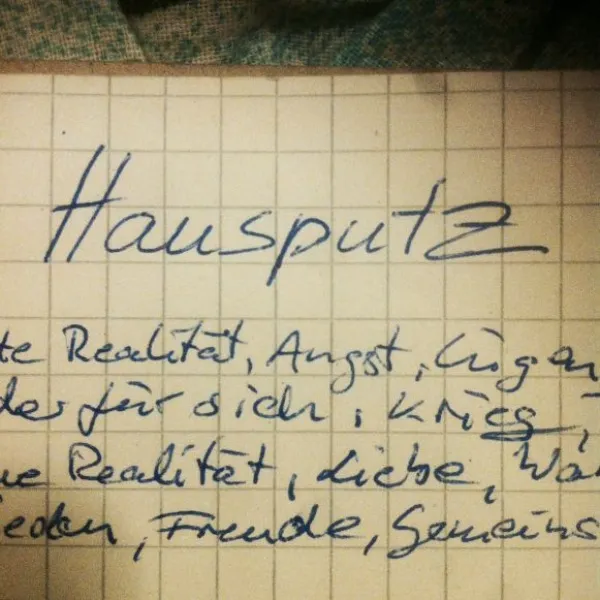 Hausputz
te Realität, Angst, Lügen
der für sich, Krieg,
ue Realität, Liebe, Wa
ieden, Freude, Gemeins